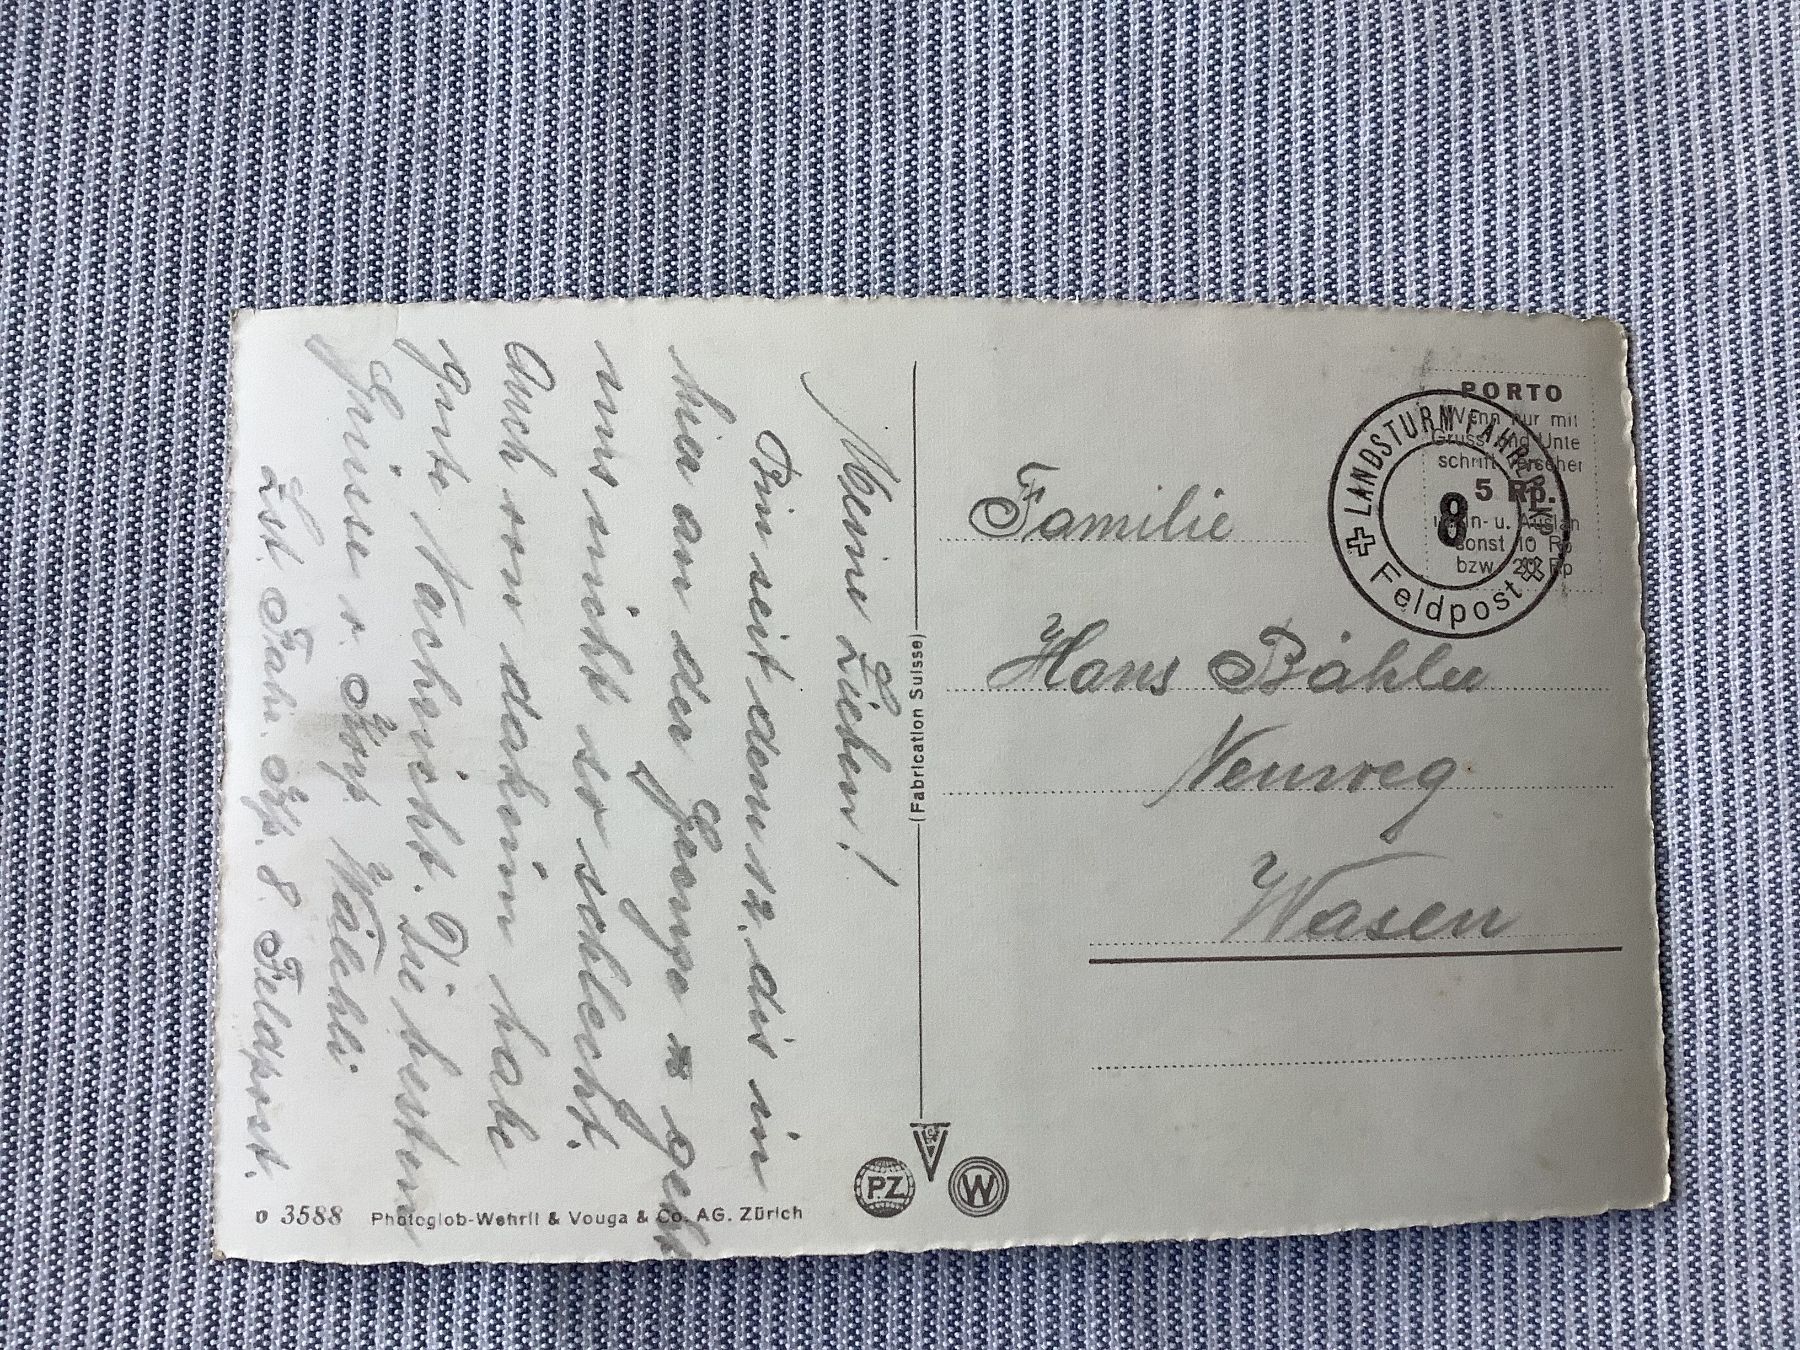 Meine Lieben!
Bin seit dem 12. dis in
hier an der Grenze & geht
mir nicht so schlecht.
Auch von daheim habe
gute Nachricht. Die besten
Grüsse v. Götz Wälchli
Lst. Fahr. Kp. 8. Feldpost.
o 3588 Photoglob-Wehrli & Vouga & Co. AG. Zürich
(Fabrication Suisse)
PZ
W
PORTO
Wenn nur mit
Gruss und Unte
schrift versehen
5 Rp.
im In- u. Auslan
sonst 10 Rp
bzw. 20 Rp
LANDSTURM FAHR
8
Feldpost
Familie
Hans Bähler
Neuweg
Wasen